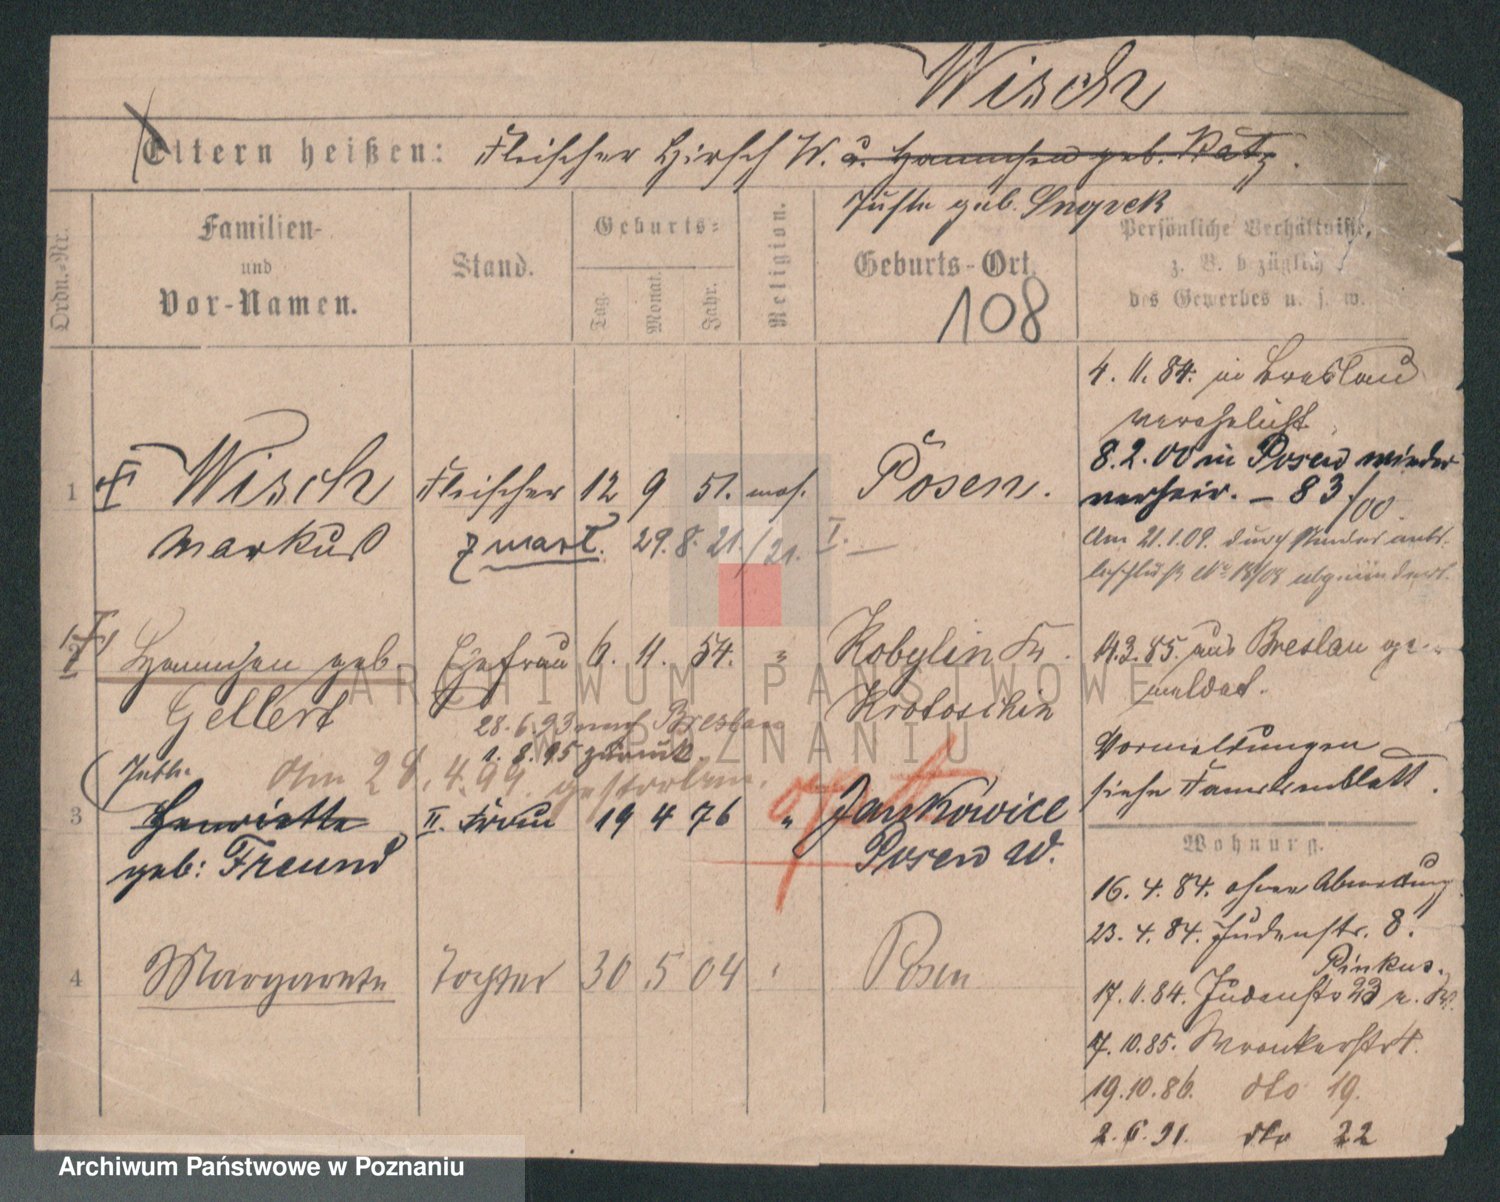 Wisch
Eltern heißen: Fleischer Hirsch W. u. Hannchen geb. Katz.
Juste geb.
Ordn.-Nr.
Familien-
und
Vor-Namen.
Stand.
Geburts-
Tag.
Monat.
Jahr.
Religion.
Geburts-Ort.
108
Persönliche Verhältnisse,
z. B. bezüglich
des Gewerbes u. s. w.
4. 11. 84. in Breslau
verehelicht
8. 2. 00 in Posen wieder
verheir. – 83/00
1 Wisch Fleischer 12 9 51. mos. Posen.
Markus 29. 8. 21./21. I.
Am 21.1.09. durch
18/08
2 Hannchen geb. Ehefrau 6. 11. 54. " Kobylin Kr.
Gellert Krotoschin
14. 3. 85. aus Breslau ge-
meldet.
28. 6. 93 nach Breslau
1. 8. 95 zurück.
Am 28. 4. 99. gestorben.
Vormeldungen
siehe Familienblatt.
3 Henriette II. Frau 19 4 76 " Jankowice
geb: Freund Posen W.
Wohnung.
16. 4. 84. ohne Abmeldung
23. 4. 84. Judenstr. 8.
4 Margarete Tochter 30 5 04 " Posen
Pinkus.
17. 11. 84. Judenstr 23
7. 10. 85. Wronkerstr 4.
19. 10. 86. dto 19.
2. 6. 91. dto 22
ARCHIWUM PAŃSTWOWE
W POZNANIU
Archiwum Państwowe w Poznaniu